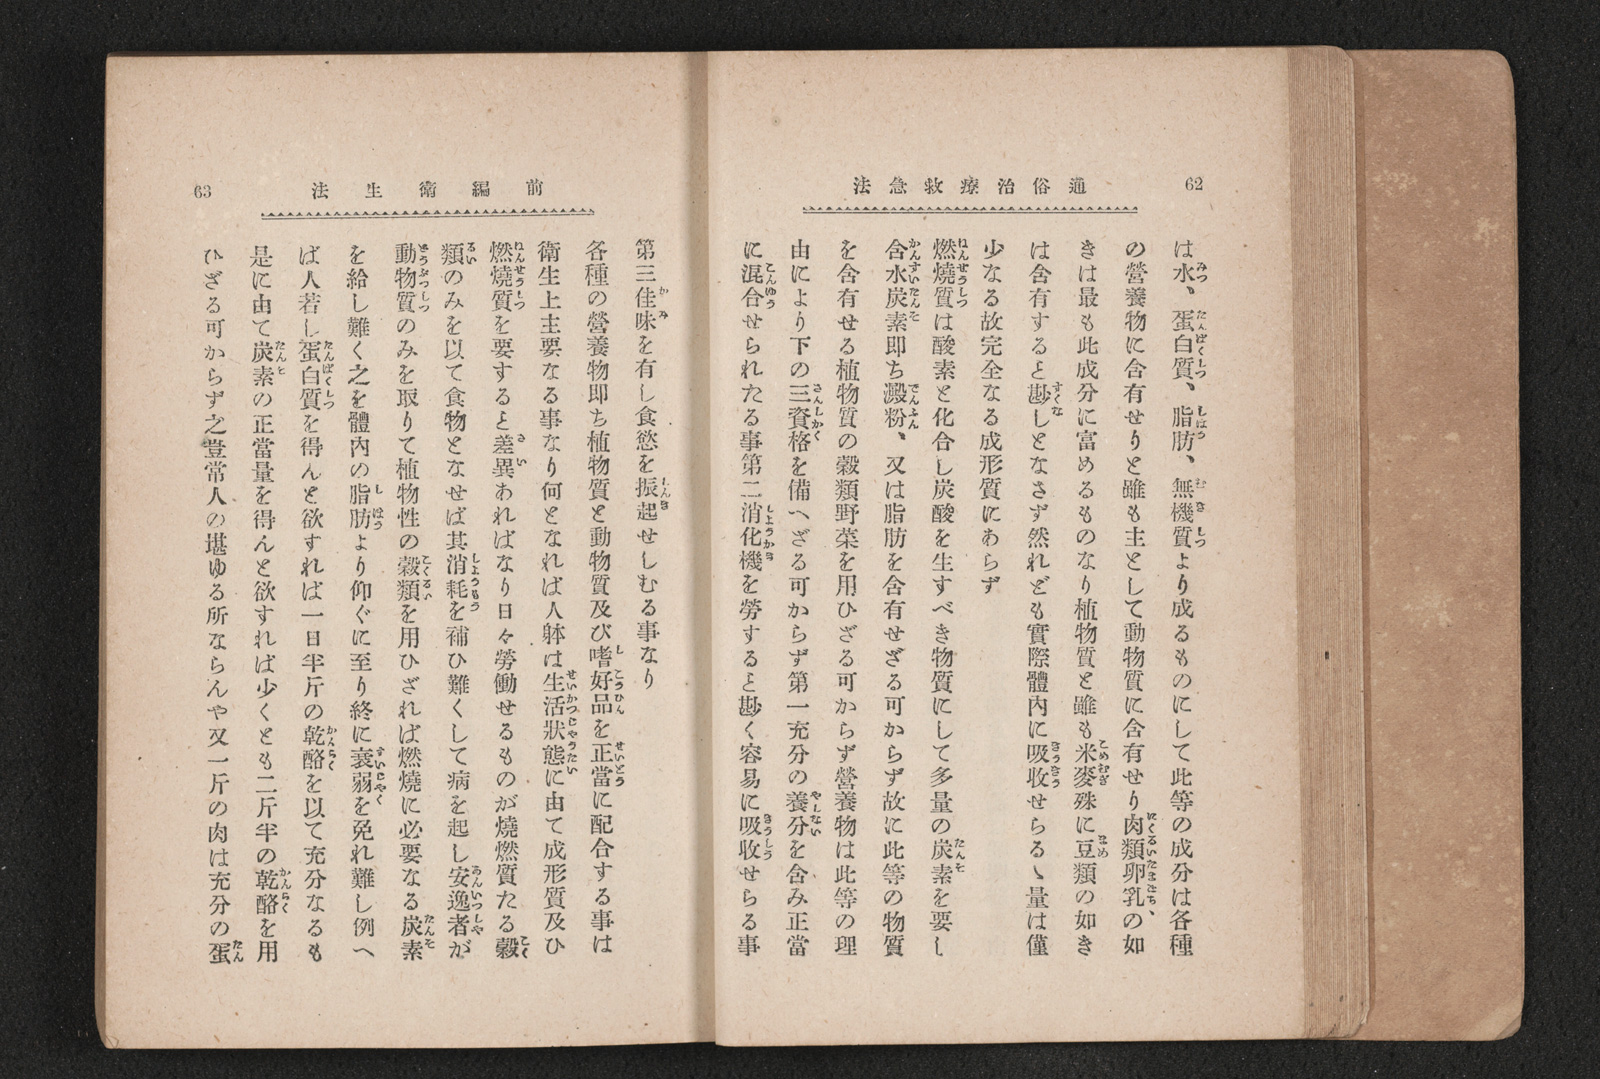 通俗治療救急法
62
は水、蛋白質、脂肪、無機質より成るものにして此等の成分は各種
の營養物に含有せりと雖も主として動物質に含有せり肉類卵乳、の如
きは最も此成分に富めるものなり植物質と雖も米麥殊に豆類の如き
は含有すると尠しとなさず然れども實際體內に吸收せらるゝ量は僅
少なる故完全なる成形質にあらず
燃燒質は酸素と化合し炭酸を生すべき物質にして多量の炭素を要し
含水炭素即ち澱粉、又は脂肪を含有せざる可からず故に此等の物質
を含有せる植物質の穀類野菜を用ひざる可からず營養物は此等の理
由により下の三資格を備へざる可からず第一充分の養分を含み正當
に混合せられたる事第二消化機を勞すると尠く容易に吸收せらる事
前編衛生法
63
第三佳味を有し食慾を振起せしむる事なり
各種の營養物即ち植物質と動物質及び嗜好品を正當に配合する事は
衛生上主要なる事なり何となれば人躰は生活狀態に由て成形質及ひ
燃燒質を要すると差異あればなり日々勞働せるものが燒燃質たる穀
類のみを以て食物となせば其消耗を補ひ難くして病を起し安逸者が
動物質のみを取りて植物性の穀類を用ひざれば燃燒に必要なる炭素
を給し難く之を體內の脂肪より仰ぐに至り終に衰弱を免れ難し例へ
ば人若し蛋白質を得んと欲すれば一日半斤の乾酪を以て充分なるも
是に由て炭素の正當量を得んと欲すれば少くとも二斤半の乾酪を用
ひざる可からず之豈常人の堪ゆる所ならんや又一斤の肉は充分の蛋